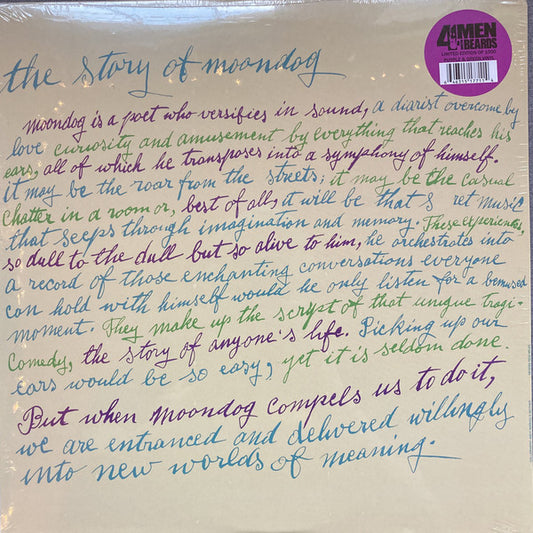 the story of moondog
4 MEN
WITH BEARDS
LIMITED EDITION OF 1000
PURPLE & GREEN VINYL
Moondog is a poet who versifies in sound, a diarist overcome by
love curiosity and amusement by everything that reaches his
ears, all of which he transposes into a symphony of himself.
it may be the roar from the streets; it may be the casual
chatter in a room or, best of all, it will be that s ret music
that seeps through imagination and memory. These experiences,
so dull to the dull but so alive to him, he orchestrates into
a record of those enchanting conversations everyone
can hold with himself would he only listen for a bemused
moment. They make up the script of that unique tragi-
comedy, the story of anyone's life. Picking up our
ears would be so easy, yet it is seldom done.
But when Moondog compels us to do it,
we are entranced and delivered willingly
into new worlds of meaning.